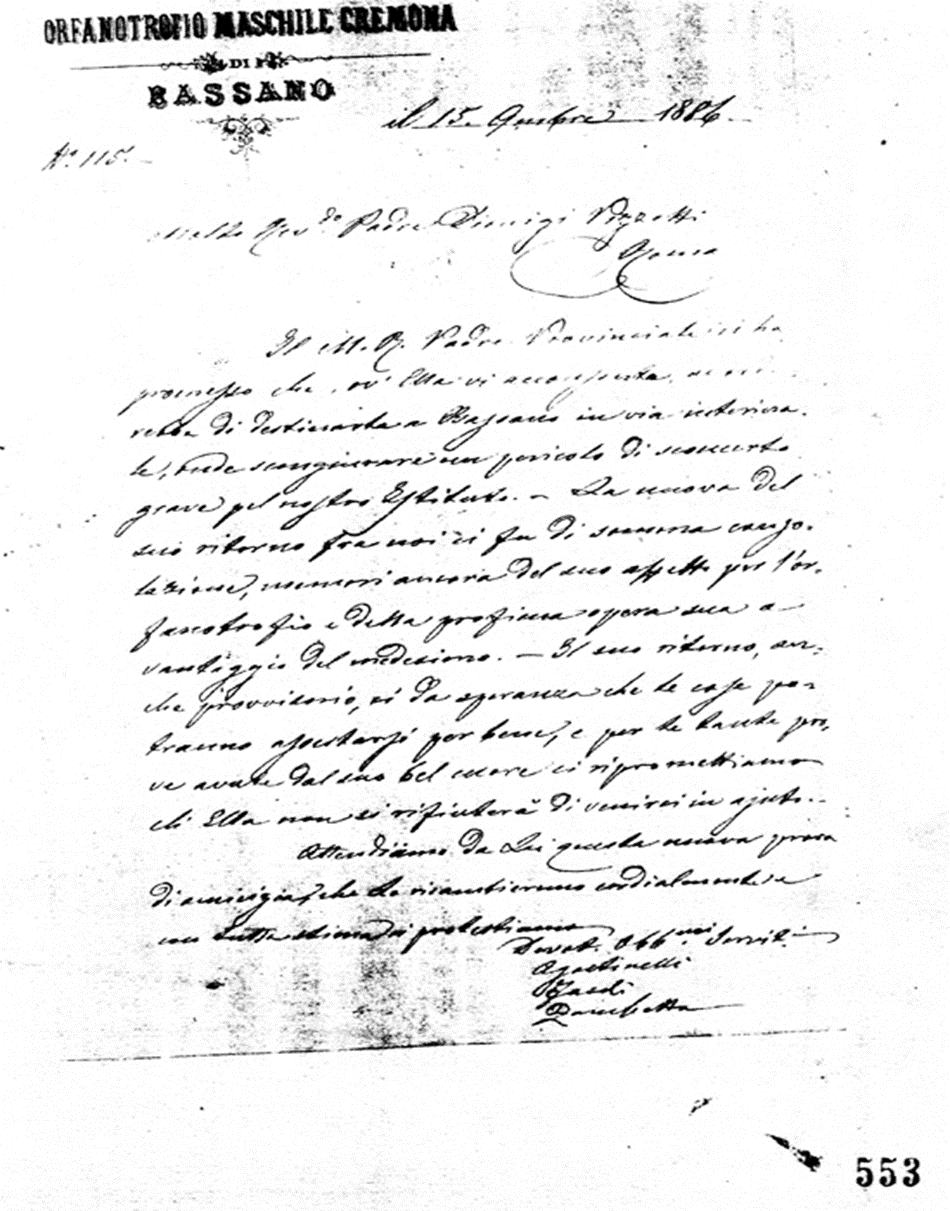 ORFANOTROFIO MASCHILE CREMONA
DI
BASSANO
il 15. 9mbre 1886.
N.° 115.
Molto Rev.do Padre Dionigi Pizzotti
Roma
Il M. R. Padre Provinciale ci ha
promesso che, ov' Ella vi acconsenta,
rebbe di destinarla a Bassano in via interina-
le, onde scongiurare un pericolo di sconcerto
grave pel nostro Istituto. — La nuova del
suo ritorno fra noi ci fu di somma conso-
lazione, memori ancora del suo affetto per l'or-
fanotrofio e della proficua opera sua a
vantaggio del medesimo. — Il suo ritorno, an-
che provvisorio, ci dà speranza che le cose po-
tranno assestarsi per bene, e per le tante pro-
ve avute dal suo bel cuore ci ripromettiamo
ch' Ella non si rifiuterà di venirci in ajuto. —
Attendiamo da Lei questa nuova prova
di amicizia, che Le ricambieremo cordialmente e
con tutta stima ci protestiamo
Devot. Obb.mi Servit.
Agostinelli
Jardi
553